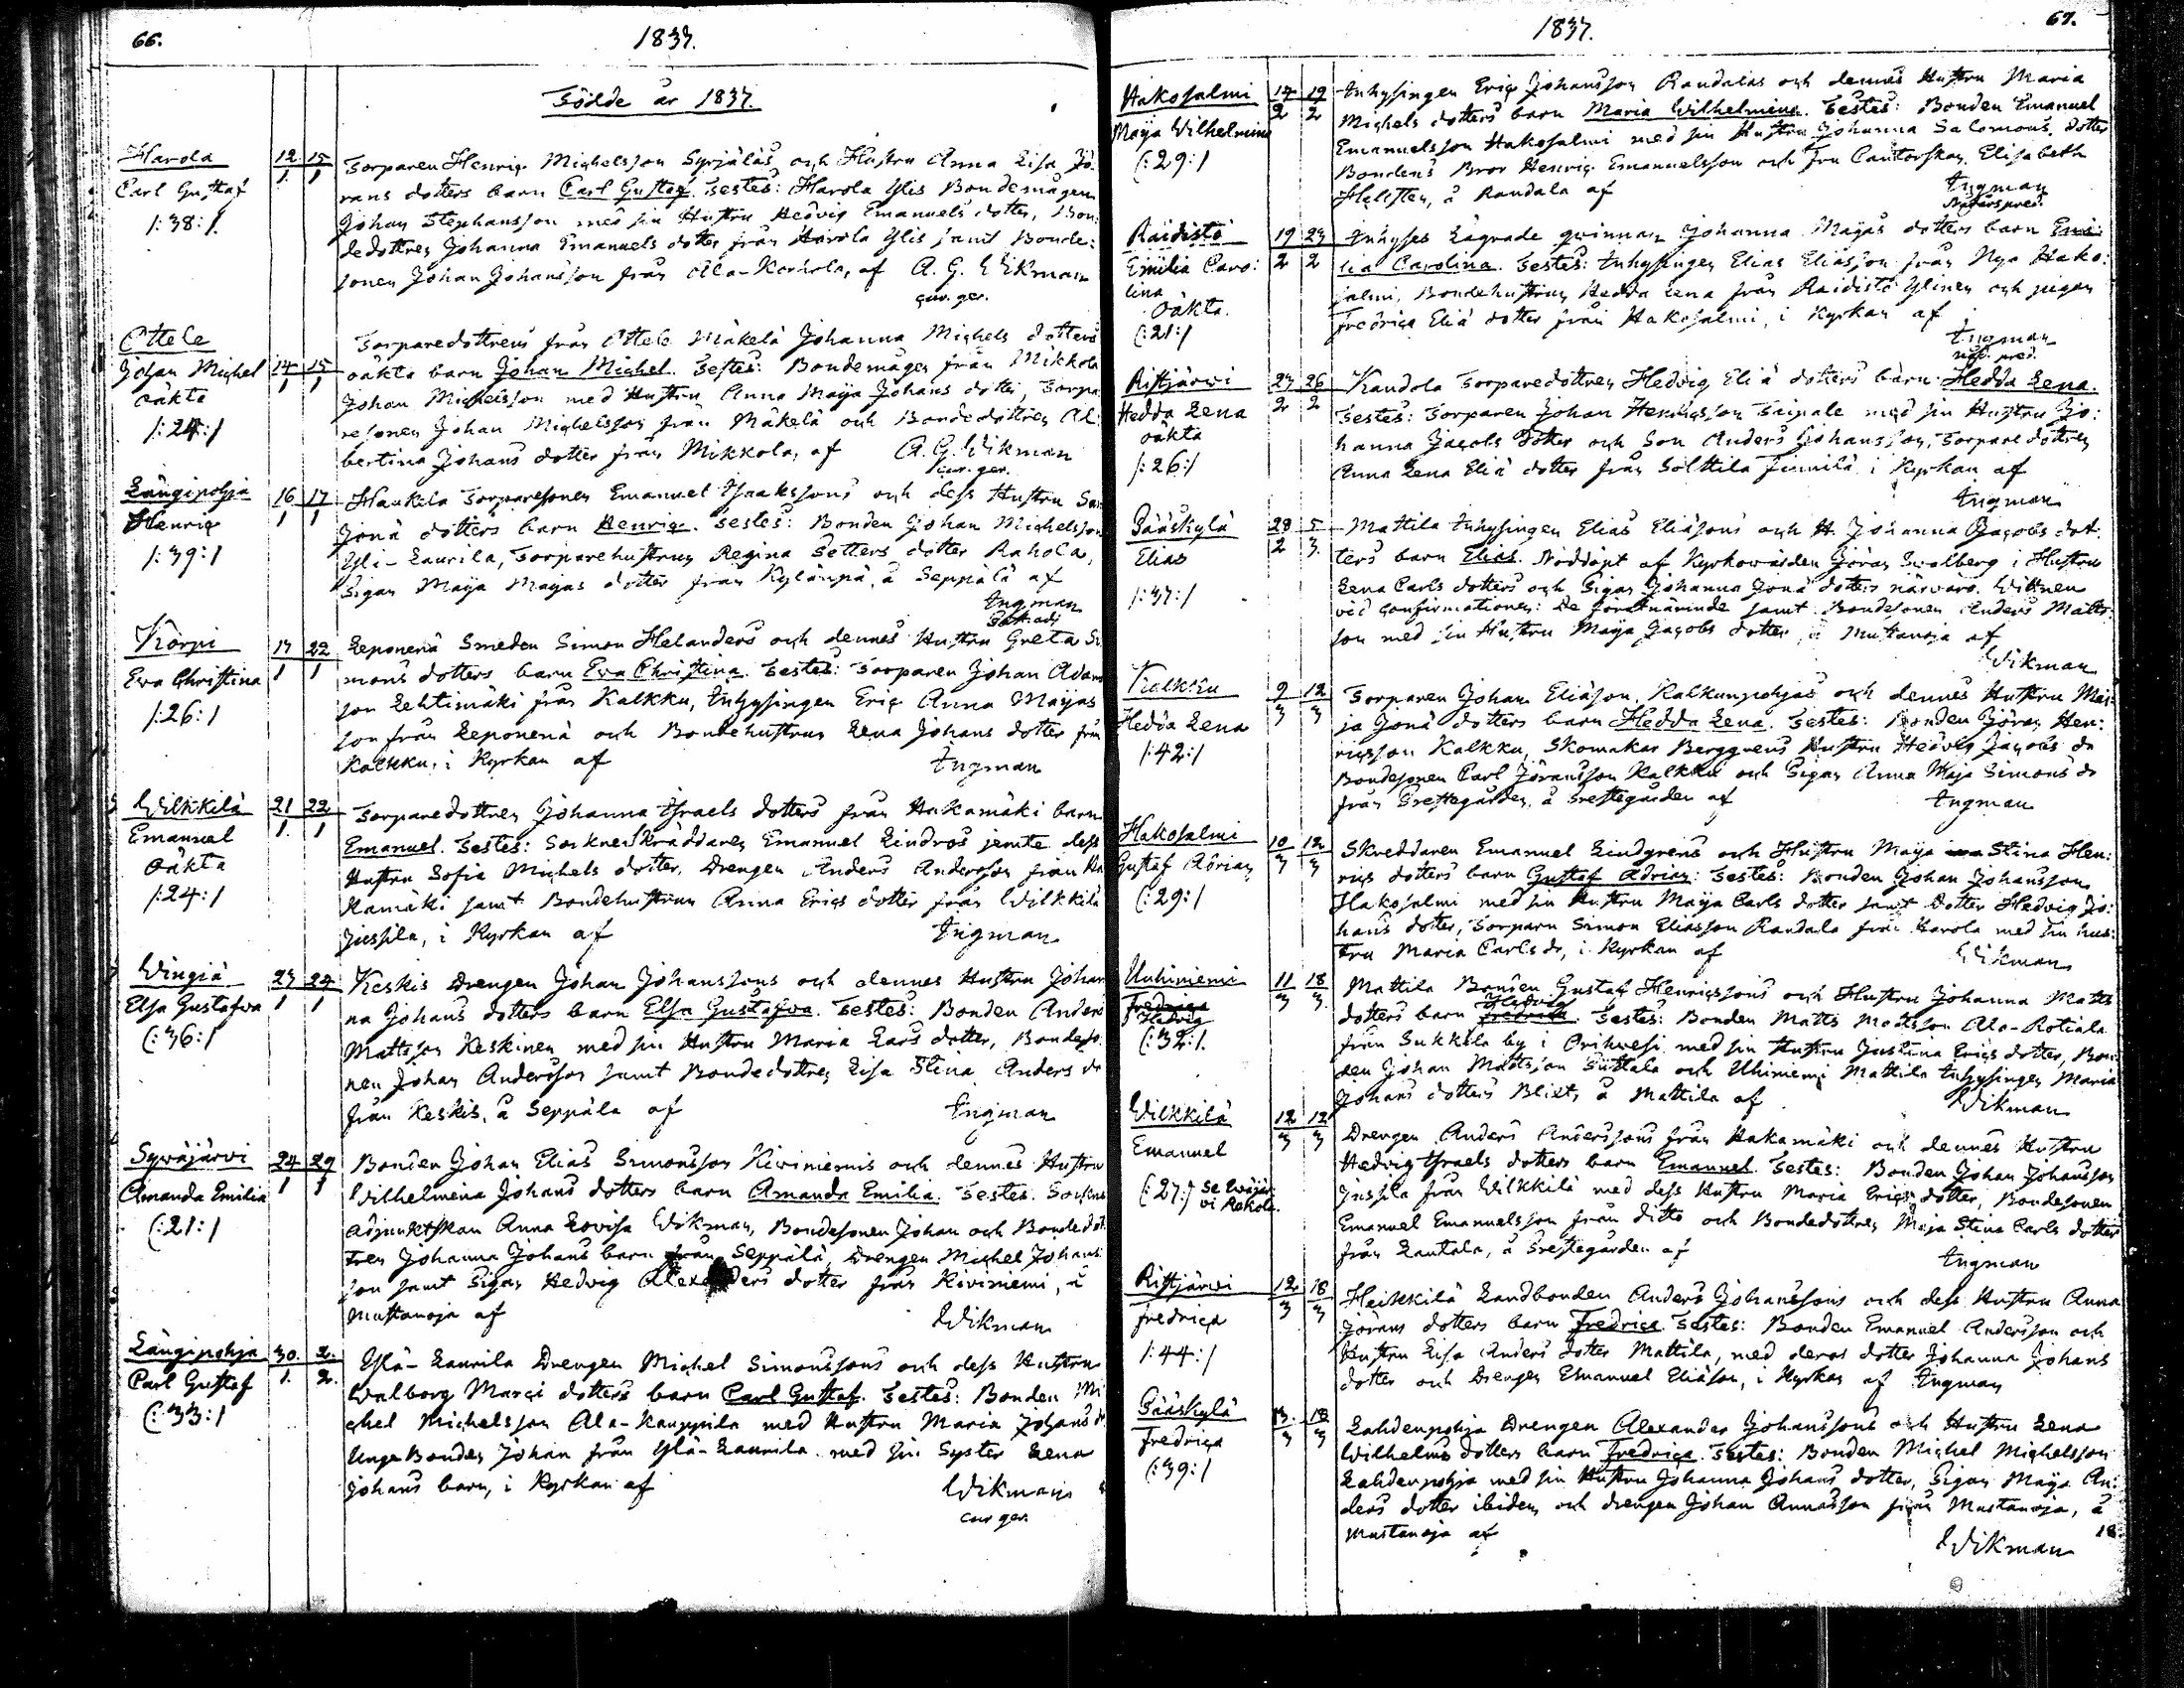 66.
1837.
Födde år 1837.
Harola
Carl Gustaf
/:38:/
12 15
1 1
Torparen Henric Michelsson Syrjäläs och Hustru Anna Lisa Jö-
rans dotters barn Carl Gustaf. Testes: Harola Ylis Bondemågen
Johan Stephansson med sin Hustru Hedvig Emanuels dotter, Bon-
dedottren Johanna Emanuels dotter från Harola Ylis samt Bonde-
sonen Johan Johansson från Ala-Korhola, af A. G. Wikman
cur. ger.
Ottele
Johan Michel
oäkta
/:24:/
14 15
1 1
Torparedottrens från Ottele Mäkelä Johanna Michels dotters
oäkta barn Johan Michel. Testes: Bondemågen från Mikkola
Johan Michelsson med Hustru Anna Maija Johans dotter, Torpa-
resonen Johan Michelsson från Mäkelä och Bondedottren Al-
bertina Johans dotter från Mikkola, af A. G. Wikman
cur. ger.
Längipohja
Henric
/:39:/
16 17
1 1
Haukela Torparesonen Emanuel Isaakssons och dess Hustru
Jonä dotters barn Henric. Testes: Bonden Johan Michelsson
Yli-Laurila, Torparehustrun Regina Petters dotter Rahola,
Pigan Maija Majas dotter från Kylänpä, å Seppälä af
Ingman
Past. adj
Korpi
Eva Christina
/:26:/
17 22
1 1
Leponenä Smeden Simon Helanders och dennes Hustru Greta Si
mons dotters barn Eva Christina. Testes: Torparen Johan Adams
son Lehtimäki från Kalkku, Inhysingen Eric Anna Maijas
son från Leponenä och Bondehustrun Lena Johans dotter från
Kalkku, i Kyrkan af Ingman
Wilkkilä
Emanuel
Oäkta
/:24:/
21 22
1 1
Torparedottren Johanna Israels dotters från Hakamäki barn
Emanuel. Testes: Sockneskräddaren Emanuel Lindros jemte dess
Hustru Sofia Michels dotter, Drengen Anders Andersson från Ha
kamäki samt Bondehustrun Anna Erics dotter från Wilkkilä
Jussila, i Kyrkan af Ingman
Wingiä
Elsa Gustafva
(:36:/
23 24
1 1
Keskis Drengen Johan Johanssons och dennes Hustru Johan
na Johans dotters barn Elsa Gustafva. Testes: Bonden Anders
Mattsson Keskinen med sin Hustru Maria Lars dotter, Bondeso
nen Johan Andersson samt Bondedottren Lisa Stina Anders dr
från Keskis, å Seppälä af Ingman
Sywäjärwi
Amanda Emilia
(:21:/
24 29
1 1
Bonden Johan Elias Simonsson Kiviniemis och dennes Hustru
Wilhelmina Johans dotters barn Amanda Emilia. Testes: Sockne
adjunktskan Anna Lovisa Wikman, Bondesonen Johan och Bondedot
tren Johanna Johans barn från Seppälä, Drengen Michel Johans-
son samt Pigan Hedvig Alexanders dotter från Kiviniemi, å
Mustanoja af Wikman
Längipohja
Carl Gustaf
(:33:/
30. 2.
1. 2.
Ylä-Laurila Drengen Michel Simonssons och dess Hustru
Walborg Marci dotters barn Carl Gustaf. Testes: Bonden Mi
chel Michelsson Ala-Kauppila med Hustru Maria Johans dr
Unge Bonden Johan från Ylä-Laurila med sin Syster Lena
Johans barn, i Kyrkan af Wikman
cur ger.
1837.
67.
Hakosalmi
Maija Wilhelmina
(:29:/
14 19
2 2
Inhysingen Eric Johansson Randalas och dennes Hustru Maria
Michels dotters barn Maria Wilhelmina. Testes: Bonden Emanuel
Emanuelsson Hakosalmi med sin Hustru Johanna Salomons dotter
Bondens Bror Henric Emanuelsson och Fru Cantorskan Elisabeth
Helisten, å Randala af Ingman
Raidistö
Emilia Caro-
lina
Oäkta.
(:21:/
19 23
2 2
Inhyses Lägrade qvinnan Johanna Majas dotters barn Emi-
lia Carolina. Testes: Inhysingen Elias Eliasson från Nya Hako-
salmi, Bondehustrun Hedda Lena från Raidistö Ylinen och pigan
Fredrica Eliä dotter från Hakosalmi, i Kyrkan af
Ingman
Ristjärwi
Hedda Lena
oäkta
/:26:/
23 26
2 2
Kandola Torparedottren Hedvig Eliä dotters barn Hedda Lena.
Testes: Torparen Johan Henricsson Taipale med sin Hustru Jo-
hanna Jacobs dotter och Son Anders Johansson, Torparedottren
Anna Lena Eliä dotter från Solttila Junnila i Kyrkan af
Ingman
Pääskylä
Elias
/:37:/
28 5
2 3
Mattila Inhysingen Elias Eliäsons och H. Johanna Jacobs dot-
ters barn Elias. Nöddöpt af Kyrkowärden Jöran Svalberg i Hustru
Lena Carls dotters och Pigan Johanna Jonä dotters närvaro. Wittnen
vid confirmationen: De förstnämnde samt Bondesonen Anders Matts-
son med sin Hustru Maija Jacobs dotter, å Mustanoja af
Wikman
Kalkku
Hedda Lena
/:42:/
9 12
3 3
Torparen Johan Eliäson Kalkunpohjas och dennes Hustru Mai-
ja Jonä dotters barn Hedda Lena. Testes: Bonden Jöran Hen-
ricsson Kalkku, Skomakar Berggrens Hustru Hedvig Jacobs dr
Bondesonen Carl Jöransson Kalkku och Pigan Anna Maja Simons dr
från Prestegården, å Prestegården af Ingman
Hakosalmi
Gustaf Adrian
(:29:/
10 12
3 3
Skreddaren Emanuel Lindgrens och Hustru Maija Stina Hen-
rics dotters barn Gustaf Adrian: Testes: Bonden Johan Johansson
Hakosalmi med sin Hustru Maija Carls dotter samt Dotter Hedvig Jo-
hans dotter, Torparn Simon Eliasson Randala från Harola med sin hus-
tru Maria Carls dr, i Kyrkan af Wikman
Uuhiniemi
Fredrica
Hedvig
(:32:/
11 18
3 3
Mattila Bonden Gustaf Henricssons och Hustru Johanna Matts
dotters barn Hedvig Fredrica. Testes: Bonden Matts Mattsson Ala-Rotiala
från Sukkila by i Orihvesi med sin Hustru Justina Erics dotter, Bon-
den Johan Mattsson Suttala och Uhiniemi Mattila Inhysingen Maria
Johans dotters Blixt, å Mattila af Wikman
Wilkkilä
Emanuel
(:27:/
12 12
3 3
Drengen Anders Anderssons från Hakamäki och dennes Hustru
Hedvig Israels dotters barn Emanuel. Testes: Bonden Johan Johansson
Jussila från Wilkkilä med dess Hustru Maria Erics dotter, Bondesonen
Emanuel Emanuelsson från ditto och Bondedottren Maja Stina Carls dotter
från Lautala, å Prestegården af Ingman
Ristjärwi
Fredrica
/:44:/
12 18
3 3
Heikkilä Landbonden Anders Johanssons och dess Hustru Anna
Jörans dotters barn Fredrica. Testes: Bonden Emanuel Andersson och
Hustru Lisa Anders dotter Mattila, med deras dotter Johanna Johans
dotter och Drengen Emanuel Eliäson, i Kyrkan af Ingman
Pääskylä
Fredrica
(:39:/
13. 18
3 3
Lahdenpohja Drengen Alexander Johanssons och Hustru Lena
Wilhelms dotters barn Fredrica. Testes: Bonden Michel Michelsson
Lahdenpohja med sin Hustru Johanna Johans dotter, Pigan Maija An-
ders dotter ibidem och drengen Johan Annasson från Mustanoja, å
Mustanoja af
Wikman
18.